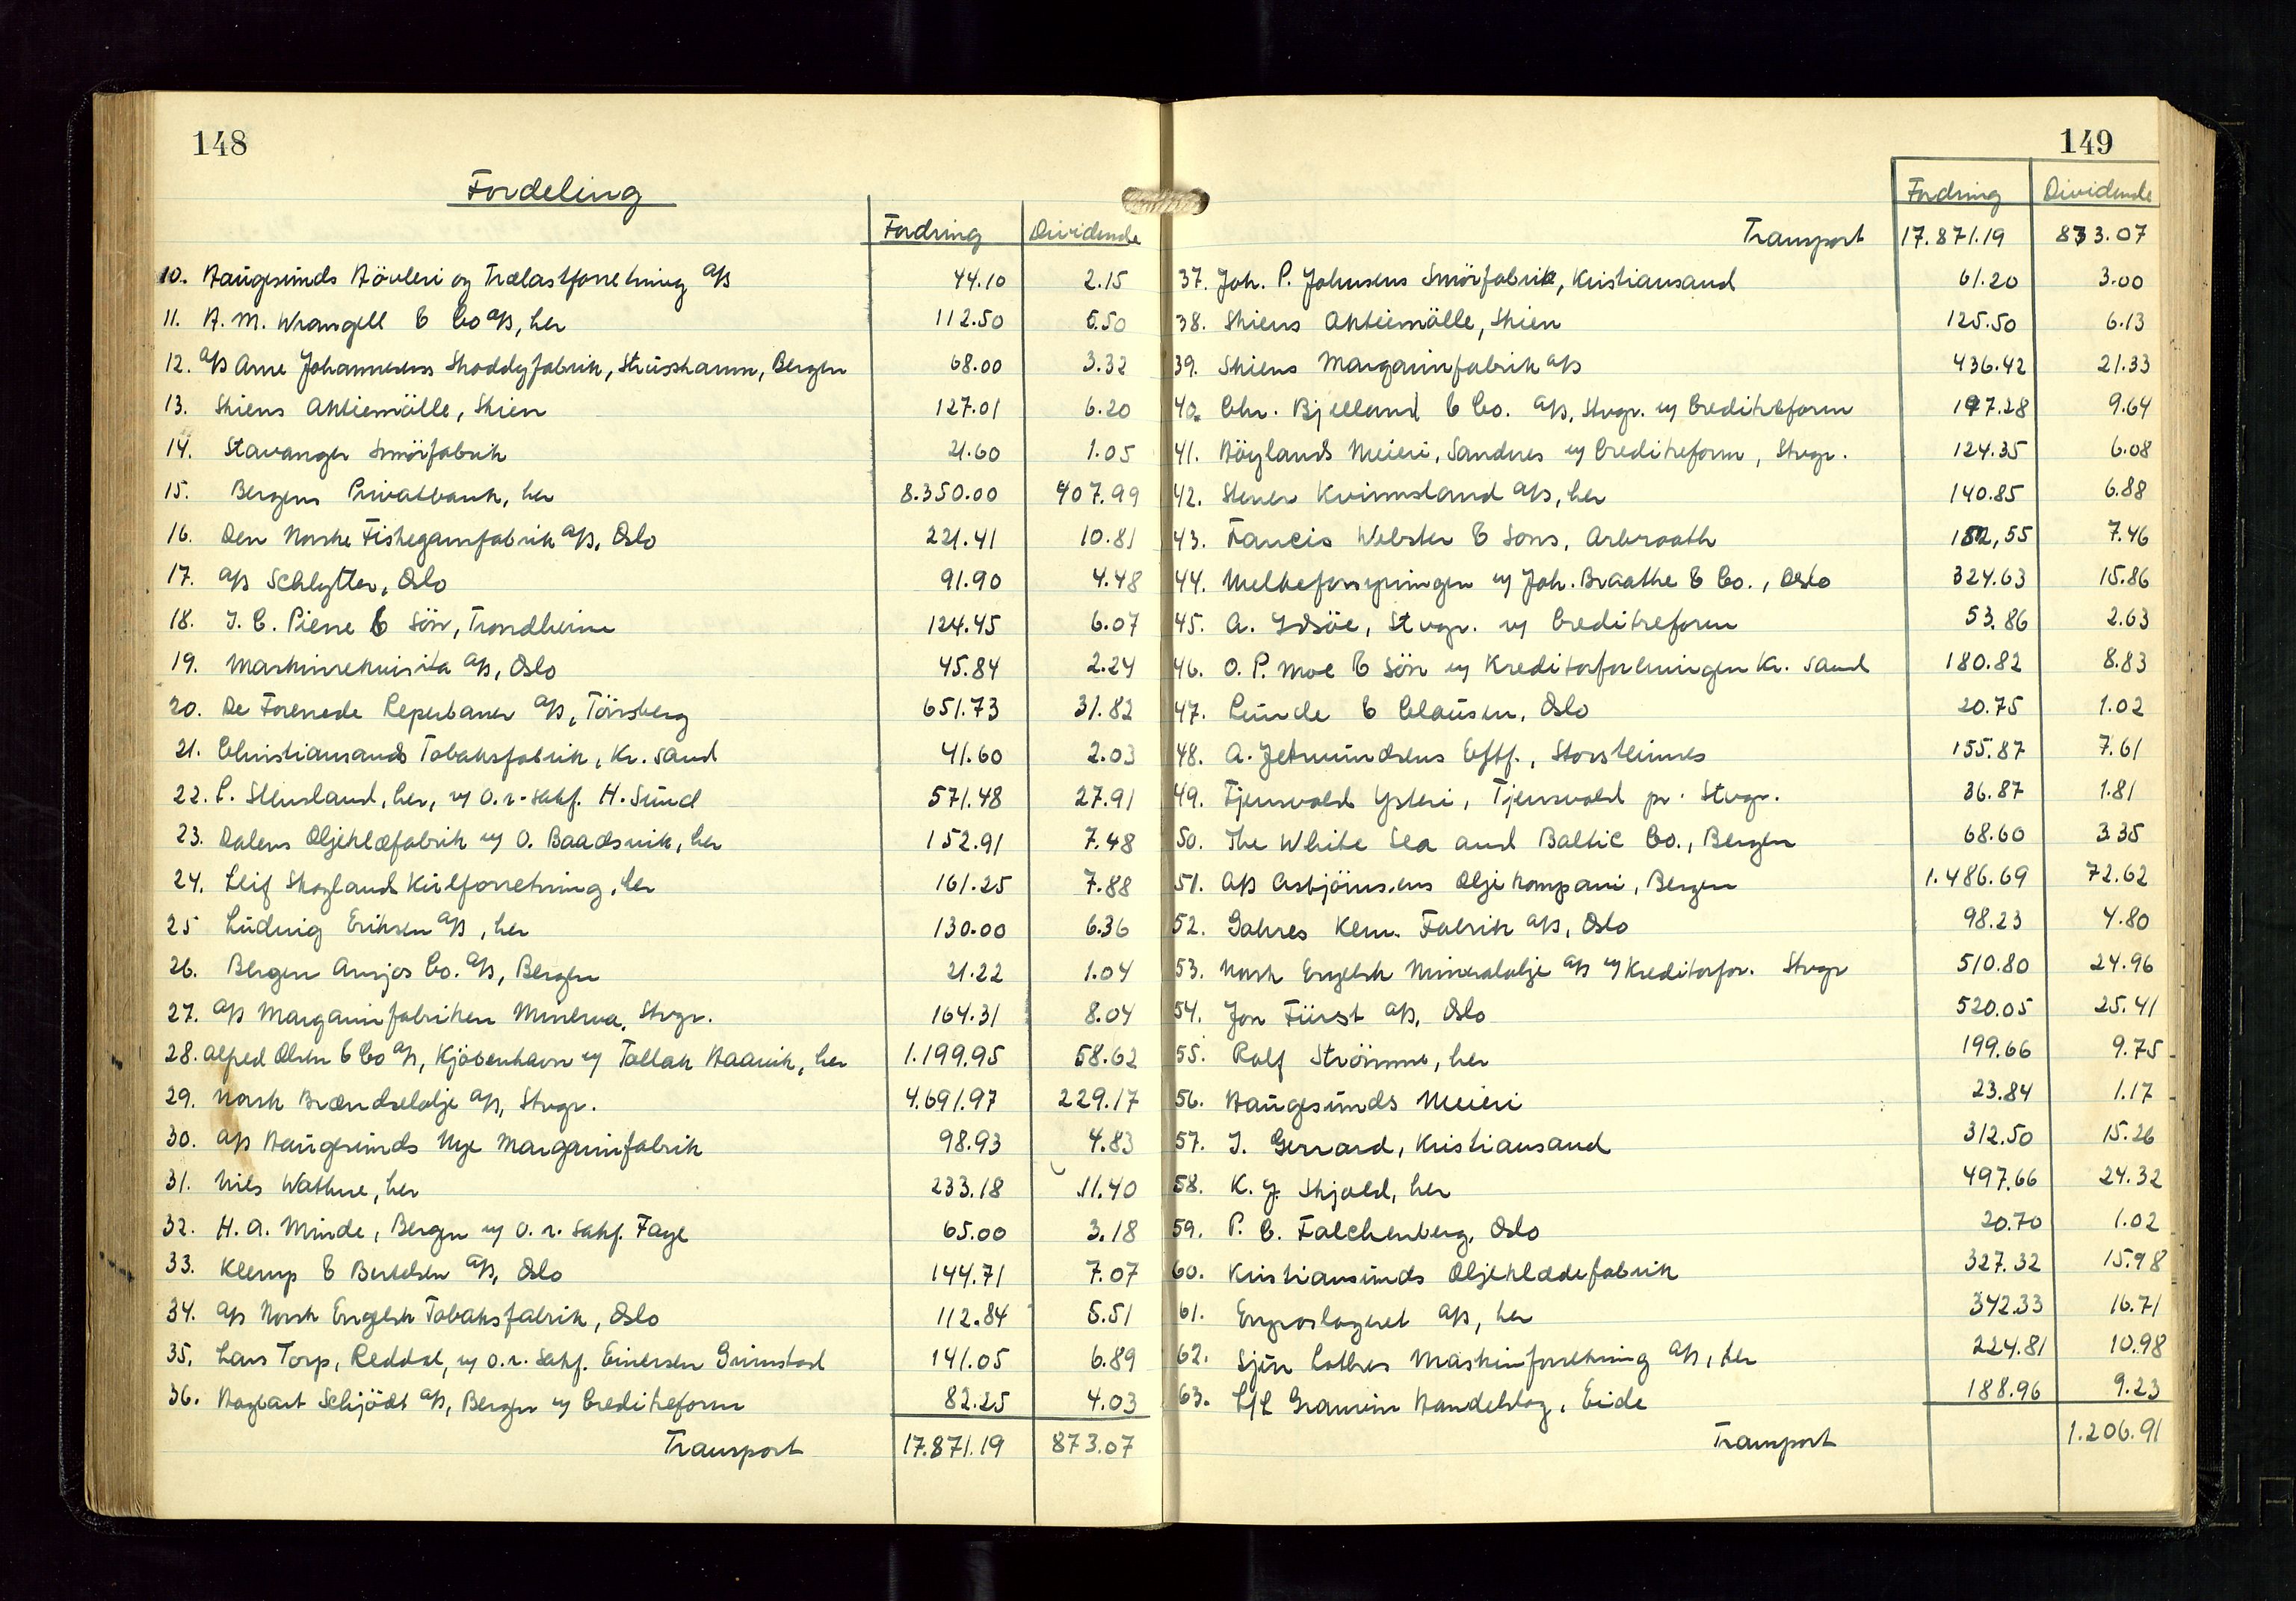 148
Fordeling
Fordring Dividende
10. Haugesunds Hövleri og Trælastforretning A/S 44.10 2.15
11. H. M. Wrangell & Co A/S, her 112.50 5.50
12. A/S Arne Johannesens Shoddyfabrik, Strusshamn, Bergen 68.00 3.32
13. Skiens Aktiemölle, Skien 127.01 6.20
14. Stavanger Smörfabrik 21.60 1.05
15. Bergens Privatbank, her 8.350.00 407.99
16. Den Norske Fiskegarnfabrik A/S, Oslo 221.41 10.81
17. A/S Schlytter, Oslo 91.90 4.48
18. I. C. Piene & Sön, Trondheim 124.45 6.07
19. Maskinrekvisita A/S, Oslo 45.84 2.24
20. De Forenede Reperbaner A/S, Tönsberg 651.73 31.82
21. Christiansands Tobaksfabrik, Kr. sand 41.60 2.03
22. P. Stensland, her, v/ O.r. sakf. H. Sund 571.48 27.91
23. Dalens Oljeklæfabrik v/ O. Baadsvik, her 152.91 7.48
24. Leif Skogland Kulforretning, her 161.25 7.88
25 Ludvig Eriksen A/S, her 130.00 6.36
26. Bergen Ansjos Co. A/S, Bergen 21.22 1.04
27. A/S Margarinfabriken Minerva, Stvgr. 164.31 8.04
28. Alfred Olsen & Co A/S, Kjöbenhavn v/ Tallak Haavik, her 1.199.95 58.62
29. Norsk Brændselolje A/S, Stvgr. 4.691.97 229.17
30. A/S Haugesunds Nye Margarinfabrik 98.93 4.83
31. Nils Wathne, her 233.18 11.40
32. H. A. Minde, Bergen v/ O. r. Sakf. Faye 65.00 3.18
33. Klerup & Bertelsen A/S, Oslo 144.71 7.07
34. A/S Norsk Engelsk Tobaksfabrik, Oslo 112.84 5.51
35. Lars Torp, Reddal, v/ O.r. Sakf. Einersen Grimstad 141.05 6.89
36. Hagbart Schjödt A/S, Bergen v/ Creditreform 82.25 4.03
Transport 17.871.19 873.07
149
Fordring Dividende
Transport 17.871.19 873.07
37. Joh. P. Johnsens Smörfabrik, Kristiansand 61.20 3.00
38. Skiens Aktiemölle, Skien 125.50 6.13
39. Skiens Margarinfabrik A/S 436.42 21.33
40. Chr. Bjelland & Co. A/S, Stvgr. v/ Creditreform 197.28 9.64
41. Höylands Meieri, Sandnes v/ Creditreform, Stvgr. 124.35 6.08
42. Stener Kvinnsland A/S, her 140.85 6.88
43. Francis Webster & Sons, Arbroath 152,55 7.46
44. Melkeforsyningen v/ Joh. Braathe & Co., Oslo 324.63 15.86
45. A. Idsöe, Stvgr. v/ Creditreform 53.86 2.63
46. O. P. Moe & Sön v/ Kreditorforeningen Kr. sand 180.82 8.83
47. Lunde & Clausen, Oslo 20.75 1.02
48. A. Jetmundsens Eftf., Storsteinnes 155.87 7.61
49. Tjensvold Ysteri, Tjensvold pr. Stvgr. 36.87 1.81
50. The White Sea and Baltic Co., Bergen 68.60 3.35
51. A/S Asbjörnsens Oljekompani, Bergen 1.486.69 72.62
52. Gahres Kem. Fabrik A/S, Oslo 98.23 4.80
53. Norsk Engelsk Mineralolje A/S v/ Kreditorfor. Stvgr 510.80 24.96
54. Jon Fürst A/S, Oslo 520.05 25.41
55. Rolf Strömme, her 199.66 9.75
56. Haugesunds Meieri 23.84 1.17
57. I. Gerrard, Kristiansand 312.50 15.26
58. K. J. Skjold, her 497.66 24.32
59. P. C. Falchenberg, Oslo 20.70 1.02
60. Kristiansunds Oljeklædefabrik 327.32 15.98
61. Engroslageret A/S, her 342.33 16.71
62. Sjur Lothes Maskinforretning A/S, her 224.81 10.98
63. L/L Handelslag, Eide 188.96 9.23
Transport 1.206.91